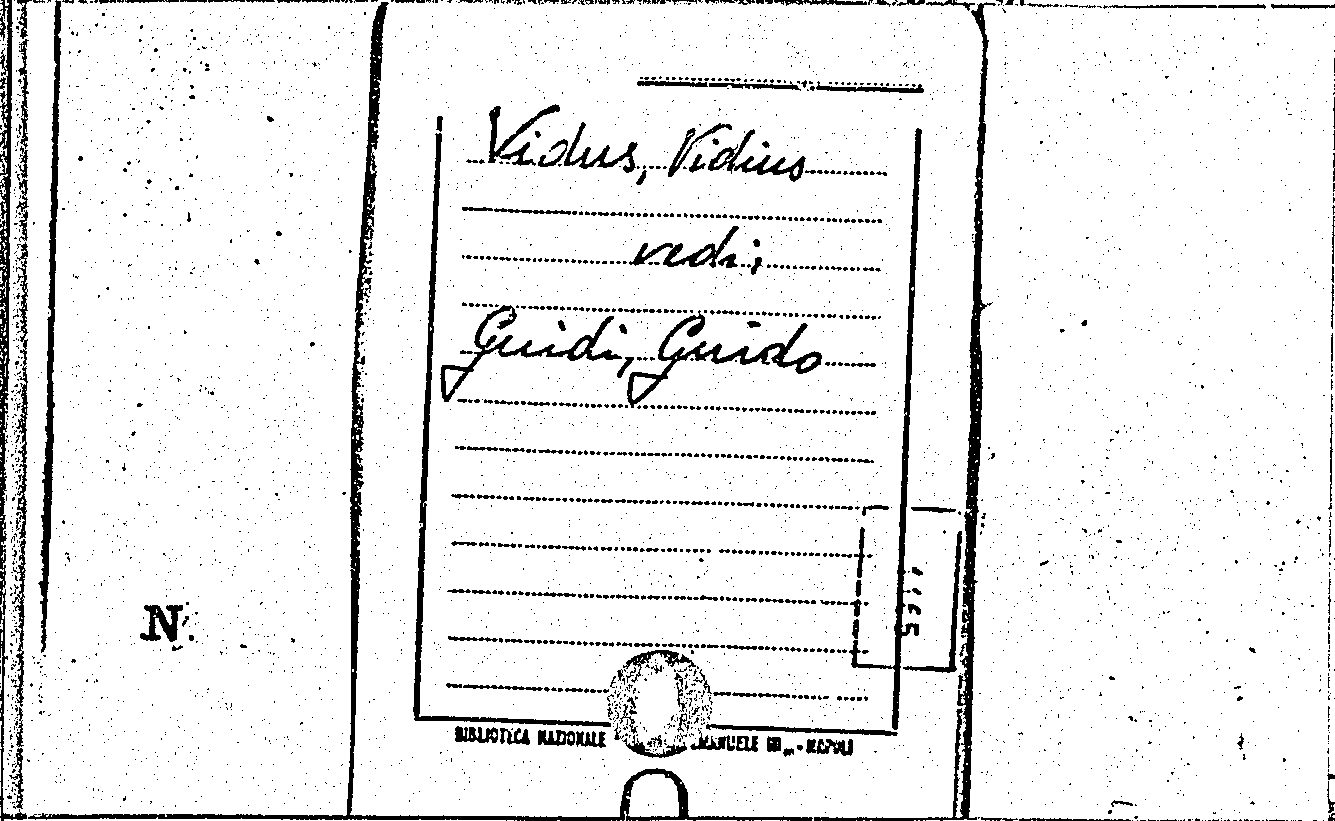 Vidus, Vidius
vedi:
Guidi, Guido
N.
BIBLIOTECA NAZIONALE MANUELE III„ - NAPOLI